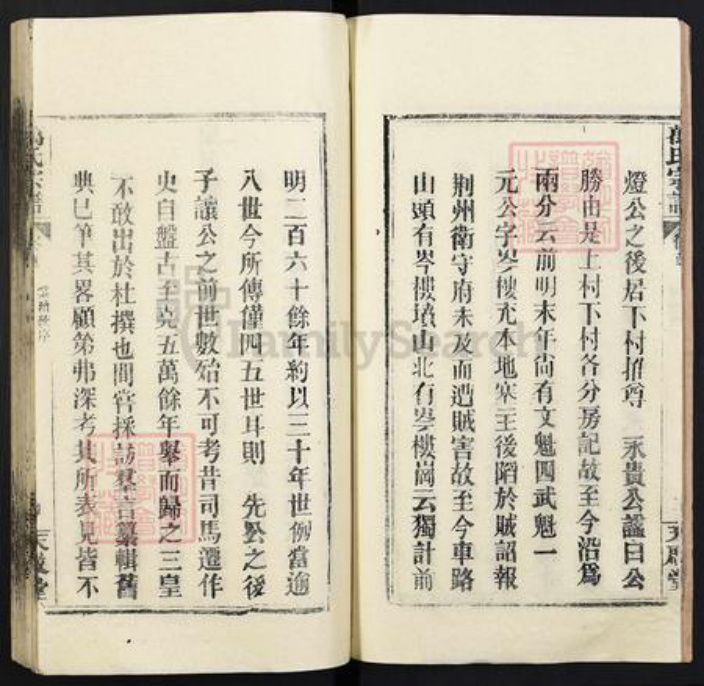 燈公之後居下村推尊 永貴公諡曰公
勝由是上村下村各分房記故至今沿為
兩分云前明末年尚有文魁四武魁一
元公字岑樓充本地寨主後陷於賊詔報
荊州衛守府未及而遭賊害故至今車路
山頭有岑樓墳山北有岑樓崗云獨計前
明二百六十餘年約以三十年世例當逾
八世今所傳僅四五世耳則 先公之後
子讓公之前世數殆不可考昔司馬遷作
史自盤古至堯五萬餘年舉而歸之三皇
不敢出於杜撰也間嘗採訪羣言纂輯舊
典已筆其畧顧第弗深考其所表見皆不
氏宗譜
天啟堂
FamilySearch